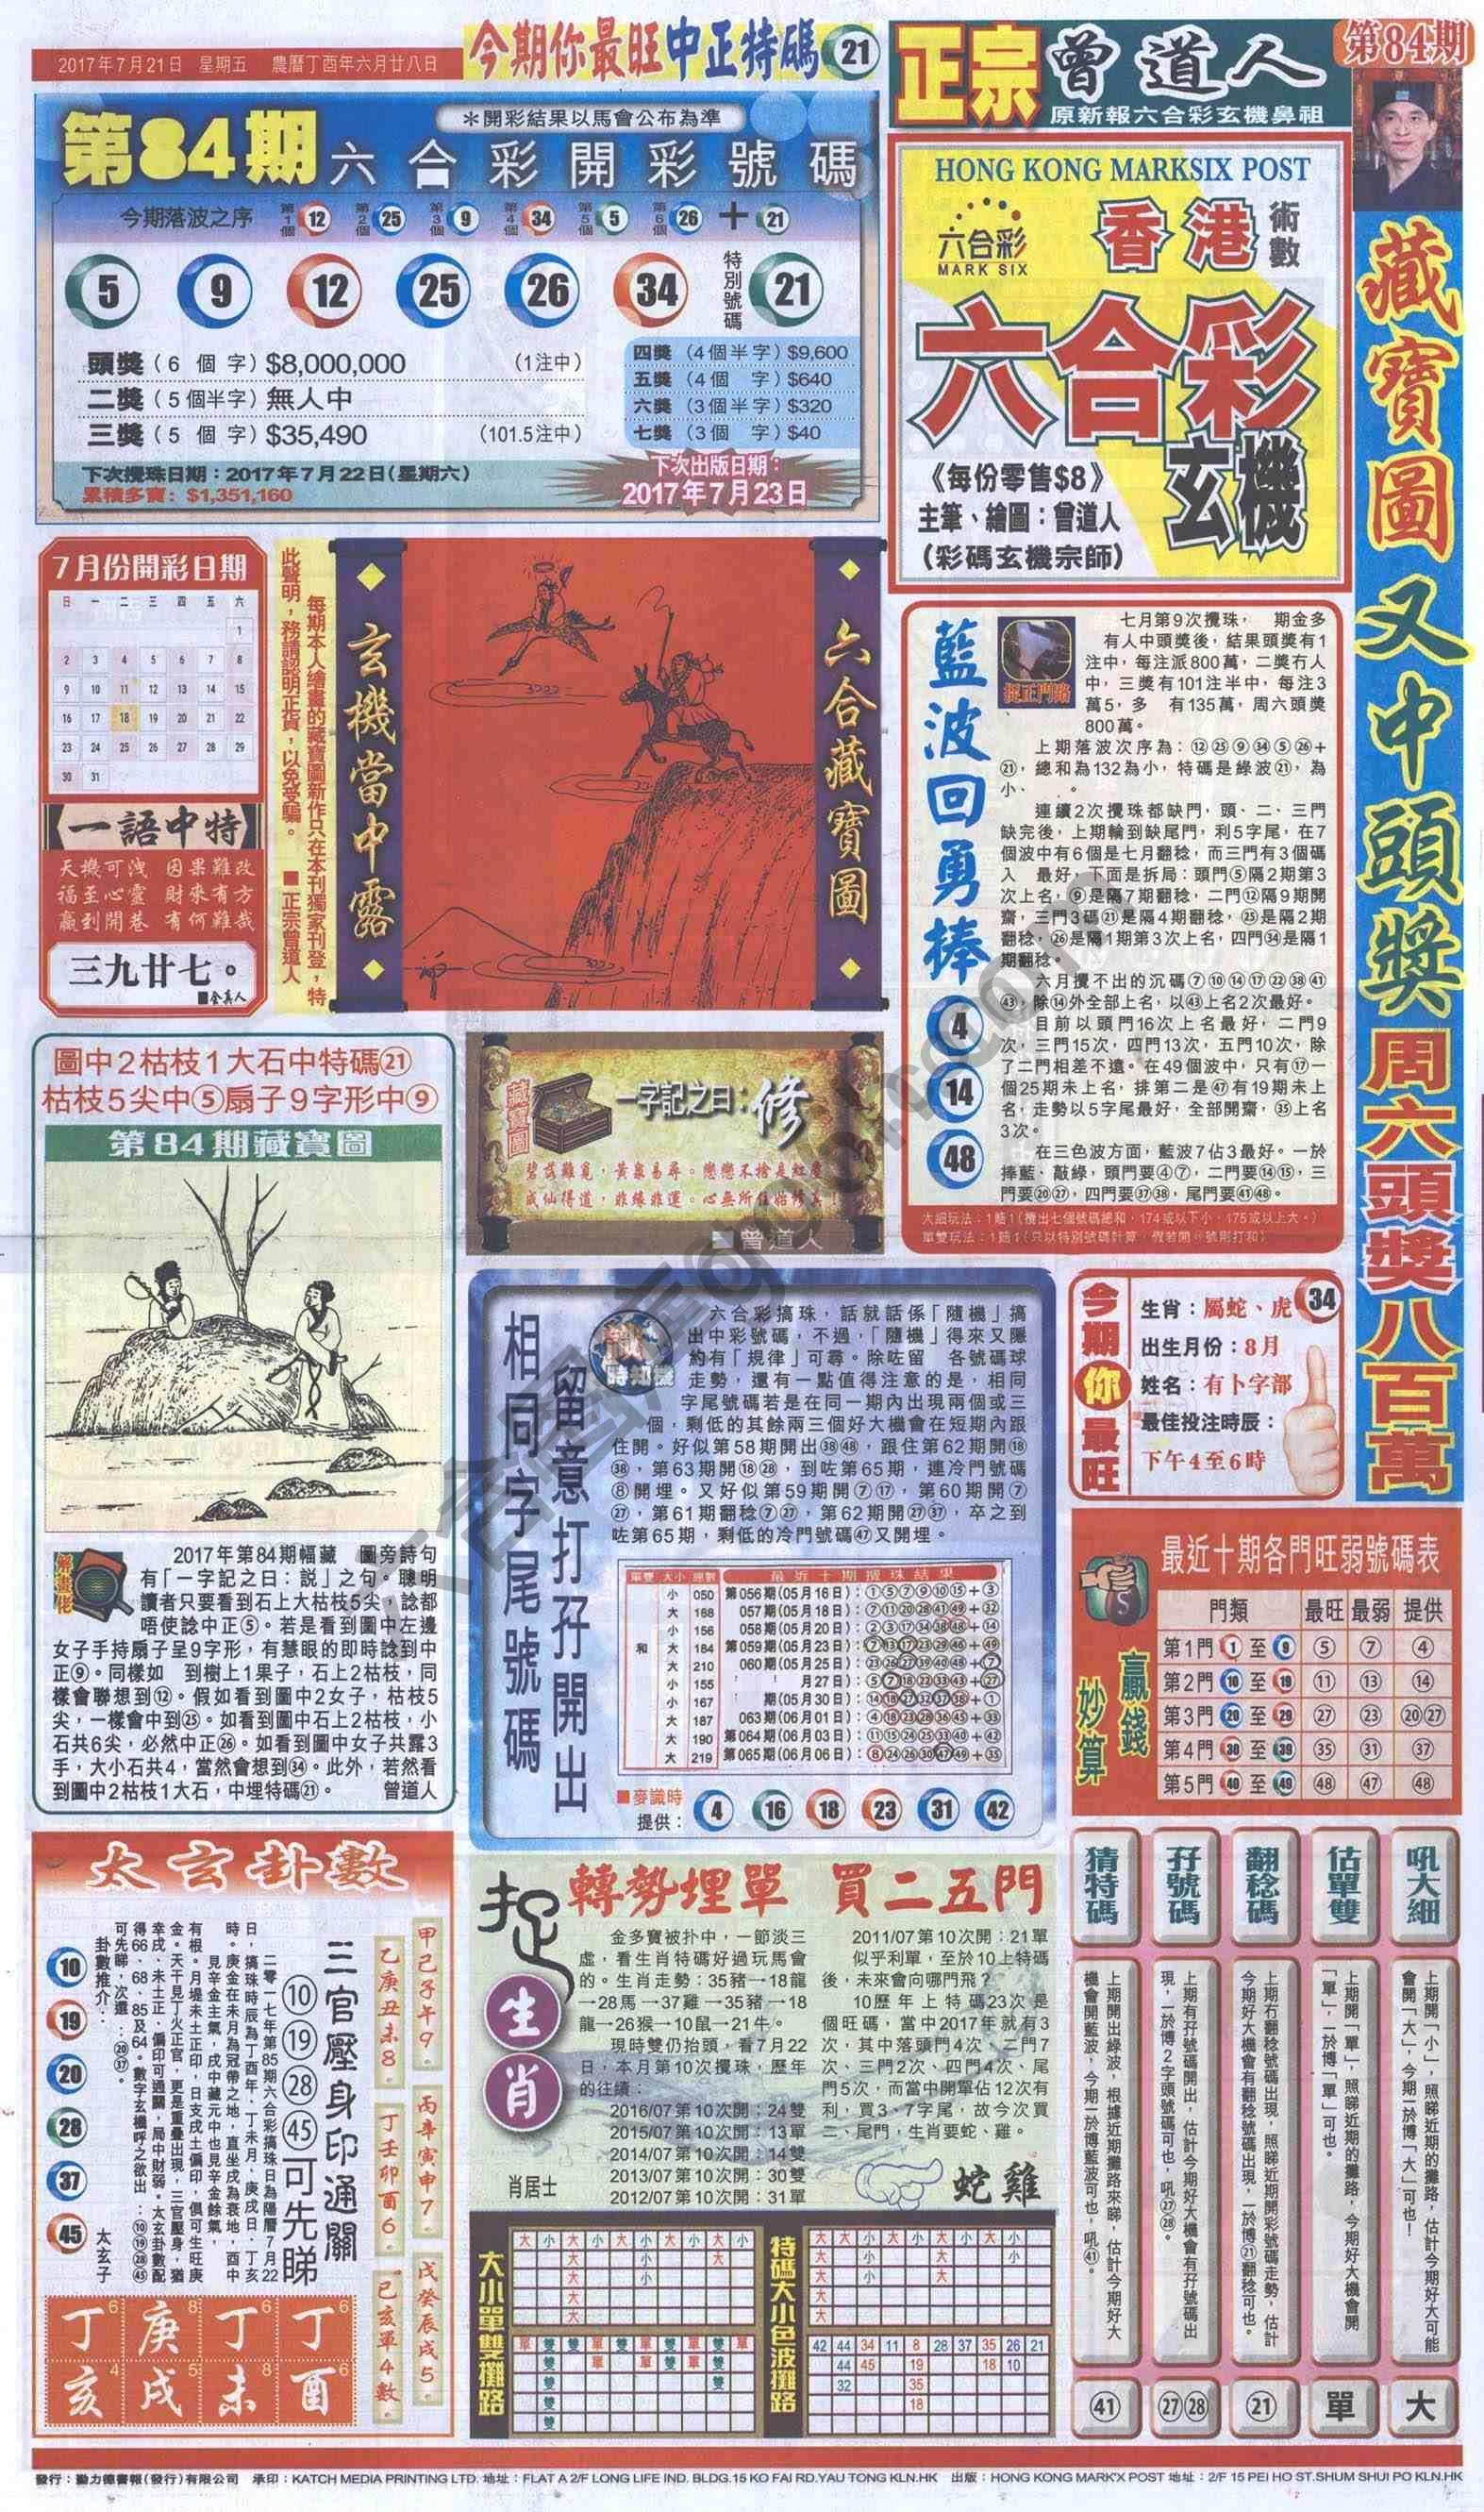 2017年7月21日　星期五　農曆丁酉年六月廿八日
今期你最旺中正特碼 21
正宗 曾道人
原新報六合彩玄機鼻祖
第84期
＊開彩結果以馬會公布為準
第84期六合彩開彩號碼
今期落波之序 第1個 12 第2個 25 第3個 9 第4個 34 第5個 5 第6個 26 ＋ 21
5 9 12 25 26 34 特別號碼 21
頭獎（6 個 字）$8,000,000 （1注中）
二獎（5個半字）無人中
三獎（5 個 字）$35,490 （101.5注中）
四獎（4個半字）$9,600
五獎（4個 字）$640
六獎（3個半字）$320
七獎（3個 字）$40
下次攪珠日期：2017年7月22日（星期六）
累積多寶：$1,351,160
下次出版日期：
2017年7月23日
HONG KONG MARKSIX POST
六合彩
MARK SIX
香港
術數
六合彩
玄機
《每份零售$8》
主筆、繪圖：曾道人
（彩碼玄機宗師）
藏寶圖又中頭獎周六頭獎八百萬
7月份開彩日期
日 一 二 三 四 五 六
1
2 3 4 5 6 7 8
9 10 11 12 13 14 15
16 17 18 19 20 21 22
23 24 25 26 27 28 29
30 31
一語中特
天機可洩 因果難改
福至心靈 財來有方
贏到開巷 有何難哉
三九廿七。
■金真人
每期本人繪畫的藏寶圖新作只在本刊獨家刊登，特
此聲明，務請認明正貨，以免受騙。 ■正宗曾道人
玄機當中露
六合藏寶圖
藍波回勇捧
4
14
48
捉正門路
七月第9次攪珠， 期金多
有人中頭獎後，結果頭獎有1
注中，每注派800萬，二獎冇人
中，三獎有101注半中，每注3
萬5，多 有135萬，周六頭獎
800萬。
上期落波次序為：⑫㉕⑨㉞⑤㉖+
㉑，總和為132為小，特碼是綠波㉑，為
小、 。
連續2次攪珠都缺門，頭、二、三門
缺完後，上期輪到缺尾門，利5字尾，在7
個波中有6個是七月翻稔，而三門有3個碼
入 最好，下面是拆局：頭門⑤隔2期第3
次上名，⑨是隔7期翻稔，二門⑫隔9期開
齋，三門3碼㉑是隔4期翻稔，㉕是隔2期
翻稔，㉖是隔1期第3次上名，四門㉞是隔1
期翻稔。
六月攪不出的沉碼⑦⑩⑭⑰㉒㊳㊶
㊸，除⑭外全部上名，以㊸上名2次最好。
目前以頭門16次上名最好，二門9
次，三門15次，四門13次，五門10次，除
了二門相差不遠。在49個波中，只有⑰一
個25期未上名，排第二是㊼有19期未上
名，走勢以5字尾最好，全部開齋，㉟上名
3次。
在三色波方面，藍波7佔3最好。一於
捧藍、敲綠，頭門要④⑦，二門要⑭⑮，三
門要⑳㉗，四門要㊲㊳，尾門要㊶㊽。
大細玩法：1賠1（攪出七個號碼總和，174或以下小，175或以上大。）
圖中2枯枝1大石中特碼㉑
枯枝5尖中⑤扇子9字形中⑨
第84期藏寶圖
解畫佬
2017年第84期幅藏 圖旁詩句
有「一字記之日：説」之句。聰明
讀者只要看到石上大枯枝5尖，諗都
唔使諗中正⑤。若是看到圖中左邊
女子手持扇子呈9字形，有慧眼的即時諗到中
正⑨。同樣如 到樹上1果子，石上2枯枝，同
樣會聯想到⑫。假如看到圖中2女子，枯枝5
尖，一樣會中到㉕。如看到圖中石上2枯枝，小
石共6尖，必然中正㉖。如看到圖中女子共露3
手，大小石共4，當然會想到㉞。此外，若然看
到圖中2枯枝1大石，中埋特碼㉑。 曾道人
藏寶圖
一字記之曰：修
碧茲難覓，黃泉易尋。戀戀不捨是紅塵
成仙得道，非緣非運。心無所住始修真！
■曾道人
相同字尾號碼
留意打孖開出
時知機
六合彩搞珠，話就話係「隨機」搞
出中彩號碼，不過，「隨機」得來又隱
約有「規律」可尋。除咗留 各號碼球
走勢，還有一點值得注意的是，相同
字尾號碼若是在同一期內出現兩個或三
個，剩低的其餘兩三個好大機會在短期內跟
住開。好似第58期開出㊳㊽，跟住第62期開⑱
㊳，第63期開⑱㉘，到咗第65期，連冷門號碼
⑧開埋。又好似第59期開⑦⑰，第60期開⑦
㉗，第61期翻稔⑦㉗，第62期開㉗㊲，卒之到
咗第65期，剩低的冷門號碼㊼又開埋。
單雙 大小 總數 最近十期攪珠結果
小 050 第056期（05月16日）：①⑤⑦⑨⑩⑮+③
大 168 057期（05月18日）：⑦⑪⑳㉘㊶㊾+㉜
小 156 058期（05月20日）：②③⑰㉞㊳㊽+⑭
和 大 184 第059期（05月23日）：⑦⑬⑰㉓㉙㊻+㊾
大 210 060期（05月25日）：㉓㉖㉗㊴㊵㊽+⑦
小 155 月27日）：⑤⑦⑱㉒㉝㊸+㉗
小 167 期（05月30日）：⑭⑱㉗㉜㊲㊳+①
大 187 063期（06月01日）：④⑱㉓㉘㊱㊺+㉝
大 190 第064期（06月03日）：⑪⑮㉔㉕㉝㊵+㊷
大 219 第065期（06月06日）：⑧㉔㉖㉚㊼㊾+㉟
■麥識時
提供：4 16 18 23 31 42
今期你最旺
生肖：屬蛇、虎 34
出生月份：8月
姓名：有卜字部
最佳投注時辰：
下午4至6時
贏錢妙算
最近十期各門旺弱號碼表
門類 最旺 最弱 提供
第1門 1 至 9 ⑤ ⑦ ④
第2門 10 至 19 ⑪ ⑬ ⑭
第3門 20 至 29 ㉗ ㉓ ⑳㉗
第4門 30 至 39 ㉟ ㉛ ㊲
第5門 40 至 49 ㊽ ㊼ ㊽
太玄卦數
甲己子午9。
乙庚丑未8。
丙辛寅申7。
丁壬卯酉6。
戊癸辰戌5。
巳亥單4數。
三官壓身印通關
⑩⑲㉘㊺可先睇
二零一七年第85期六合彩搞珠日為陽曆7月22
日，搞珠時辰為丁酉年、丁未月、庚戌日、丁亥
時。庚金在未月為冠帶之地，直坐戌為衰地，酉中
見辛金主氣，戌中藏元中也見辛金餘氣，
有根。月堤未土正印，日支戌土偏印，俱可生旺庚
金。天干見丁火正官，更是重疊出現，三官壓身，猶
幸戌、未土正、偏印可通關，局中財弱。太玄卦數配
得66、68、85及64。數字玄機呼之欲出：⑩⑲㉘㊺
可先睇，次選：⑳㊲。
卦數推介：
10 19 20 28 37 45
太玄子
丁6 庚8 丁6 丁6
亥4 戌5 未8 酉6
捉生肖
轉勢埋單 買二五門
金多寶被扑中，一節淡三
虛，看生肖特碼好過玩馬會
的。生肖走勢：35豬→18龍
→28馬→37雞→35豬→18
龍→26猴→10鼠→21牛。
現時雙仍抬頭，看7月22
日，本月第10次攪珠，歷年
的往績：
2016/07第10次開：24雙
2015/07第10次開：13單
2014/07第10次開：14雙
2013/07第10次開：30雙
2012/07第10次開：31單
肖居士
2011/07第10次開：21單
似乎利單，至於10上特碼
後，未來會向哪門飛？
10歷年上特碼23次是
個旺碼，當中2017年就有3
次，其中落頭門4次、二門7
次、三門2次、四門4次、尾
門5次，而當中開單佔12次有
利，買3、7字尾，故今次買
二、尾門，生肖要蛇、雞。
蛇雞
大小單雙攤路
大 小 大 小 大 小 大 小 大 小
特碼大小色波攤路
大 大 小 小 小 大 小 大 小
42 44 34 11 8 28 37 35 26 21
44 45 19 18 10
32 35
18
猜特碼
上期開出綠波，根據近期攤路來睇，估計今期好大
機會開藍波，今期一於博藍波可也，吼㊶。
㊶
孖號碼
上期有孖號碼開出，估計今期好大機會有孖號碼出
現，一於博2字頭號碼可也，吼㉗㉘。
㉗㉘
翻稔碼
上期冇翻稔號碼出現，照睇近期開彩號碼走勢，估計
今期好大機會有翻稔號碼出現，一於博㉑翻稔可也。
㉑
估單雙
上期開「單」，照睇近期的攤路，今期好大機會開
「單」，一於博「單」可也。
單
吼大細
上期開「小」，照睇近期的攤路，估計今期好大可能
會開「大」，今期一於博「大」可也！
大
發行：勤力德書報（發行）有限公司　承印：KATCH MEDIA PRINTING LTD. 地址：FLAT A 2/F LONG LIFE IND. BLDG.15 KO FAI RD.YAU TONG KLN.HK　出版：HONG KONG MARK'X POST 地址：2/F 15 PEI HO ST.SHUM SHUI PO KLN.HK